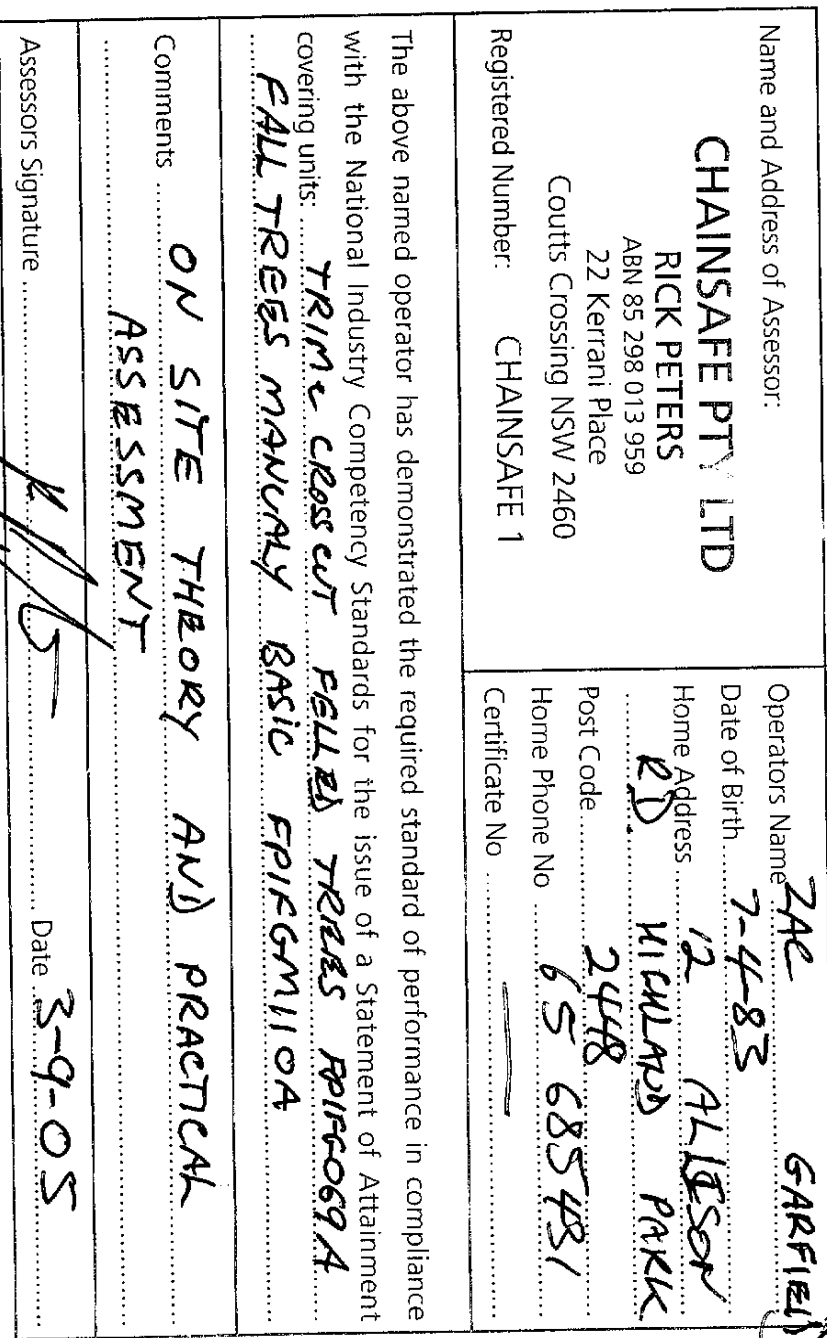 Name and Address of Assessor:
CHAINSAFE PTY LTD
RICK PETERS
ABN 85 298 013 959
22 Kerrani Place
Coutts Crossing NSW 2460
Registered Number: CHAINSAFE 1
Operators Name ZAC GARFIELD
Date of Birth 7-4-83
Home Address 12 ALLISON
RD HIGHLAND PARK
Post Code 2448
Home Phone No 65 685431
Certificate No
The above named operator has demonstrated the required standard of performance in compliance
with the National Industry Competency Standards for the issue of a Statement of Attainment
covering units: TRIM & CROSS CUT FELLED TREES FPIFG069A
FALL TREES MANUALY BASIC FPIFGM110A
Comments ON SITE THEORY AND PRACTICAL
ASSESSMENT
Assessors Signature Date 3-9-05